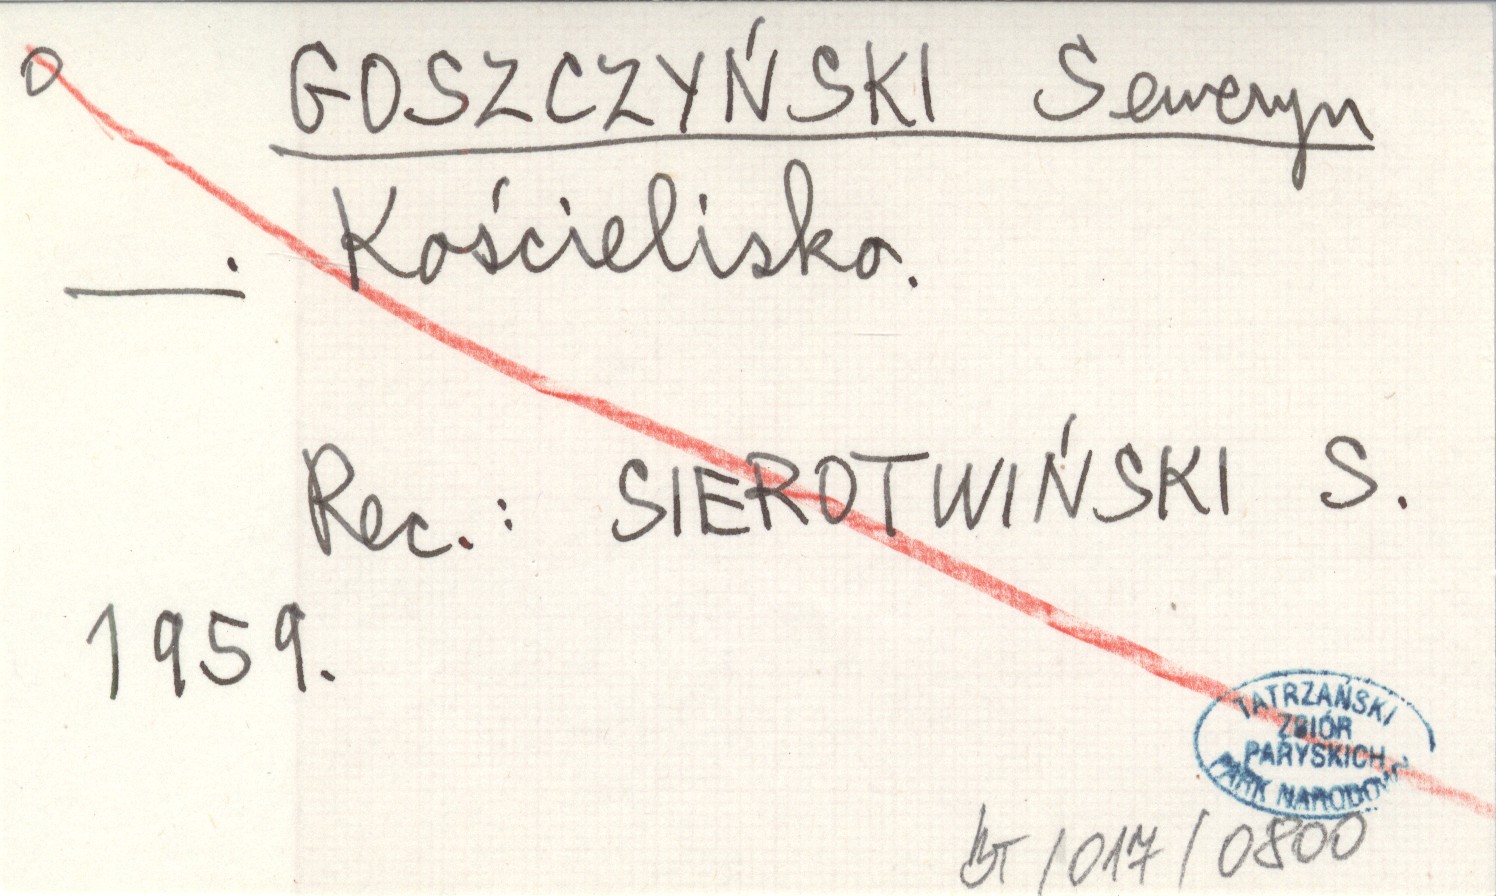 GOSZCZYŃSKI Seweryn
Kościelisko.
Rec.: SIEROTWIŃSKI S.
1959.
TATRZAŃSKI
ZBIÓR
PARYSKICH
PARK NARODOWY
BT/017/0800